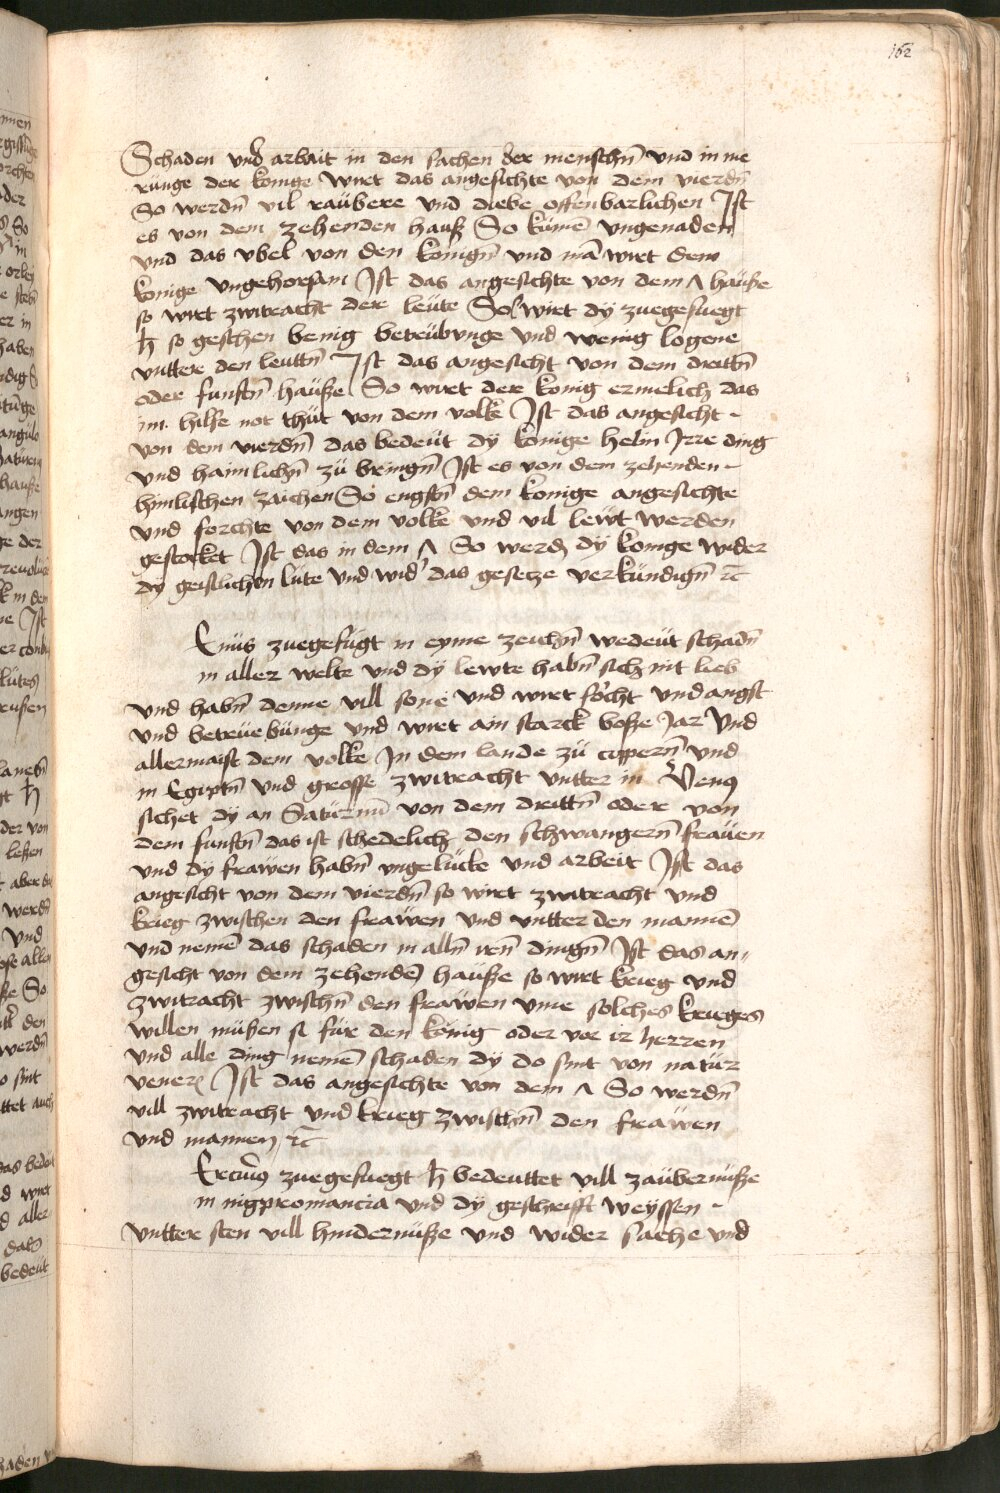 162
Schaden vnd arbait in den sachen der menschn̄ vnd in me
runge der konige Wirt das angesichte von dem vierdn̄
So werdn̄ vil raübere vnd diebe offenbarlichen Jst
es von dem zehenden hauß So kümē vngenaden
vnd das vbel von den konign̄ vnd mā wirt dem
konige vngehorsam Jst das angesichte von dem ꓥ haüße
so wirt zwitracht der leüte So wirt dÿ zuegefuegt
♄ so geschen benig betrübunge vnd wenig logene
vnttere den leuttn̄ Jst das angesicht von dem drittn̄
oder funftn̄ haüße So wirt der konig ermelich das
im hilfe not thüt von dem volke Jst das angesicht -
von dem vierdn̄ das bedeüt dÿ konige helin Jrre ding
vnd haimlichn̄ zü bringn̄ Jst es von dem zehenden -
himlischen zaichen So engstn̄ dem konige angesichte
vnd forchte von dem volke vnd vil lewt werden
gestocket Jst das in dem ꓥ So werdn̄ dÿ konige wider
dÿ geistlichen lüte vnd wid' das gesetze verkündign̄ ꝛc̄
Enüs zuegefügt in eyme zeichn̄ wedeüt schadn̄
in aller welte vnd dÿ lewte habn̄ sich nit lieb
vnd habn̄ denne vill sone vnd wirt focht vnd angst
vnd betrüebünge vnd wirt ain starck boße Jar Vnd
allermaist dem volke Jn dem lande zü cippern̄ vnd
in Egiptn̄ vnd grosse zwitracht vntter in Venꝰ
sichet dÿ an Saturnū von dem drittn̄ oder von
dem funftn̄ das ist schedelich den schwangern̄ fraüen
vnd dÿ fraẅen habn̄ vngelücke vnd arbeit Jst das
angesicht von dem vierdn̄ so wirt zwitracht vnd
krieg zwischen den fraẅen vnd vntter den mannē
vnd nemē das schaden in alln̄ irn̄ dingn̄ Jst das an,
gesicht von dem zehendē haüße so wirt krieg vnd
zwitracht zwischn̄ den fraẅen vme solches krieges
willen müßen si für den könig oder vor ir herren
vnd alle ding nemē schaden dÿ do sint von natür
veneris Jst das angesichte von dem ꓥ So werdn̄
vill zwitracht vnd krieg zwischn̄ den fraẅen
vnd mannen ꝛc̄
Ercūꝰ zuegefuegt ♄ bedeuttet vill zaübernüße
in nigpromancia vnd dÿ geschrifft weyssen -
vntter sten vill hindernüße vnd wider sache vnd